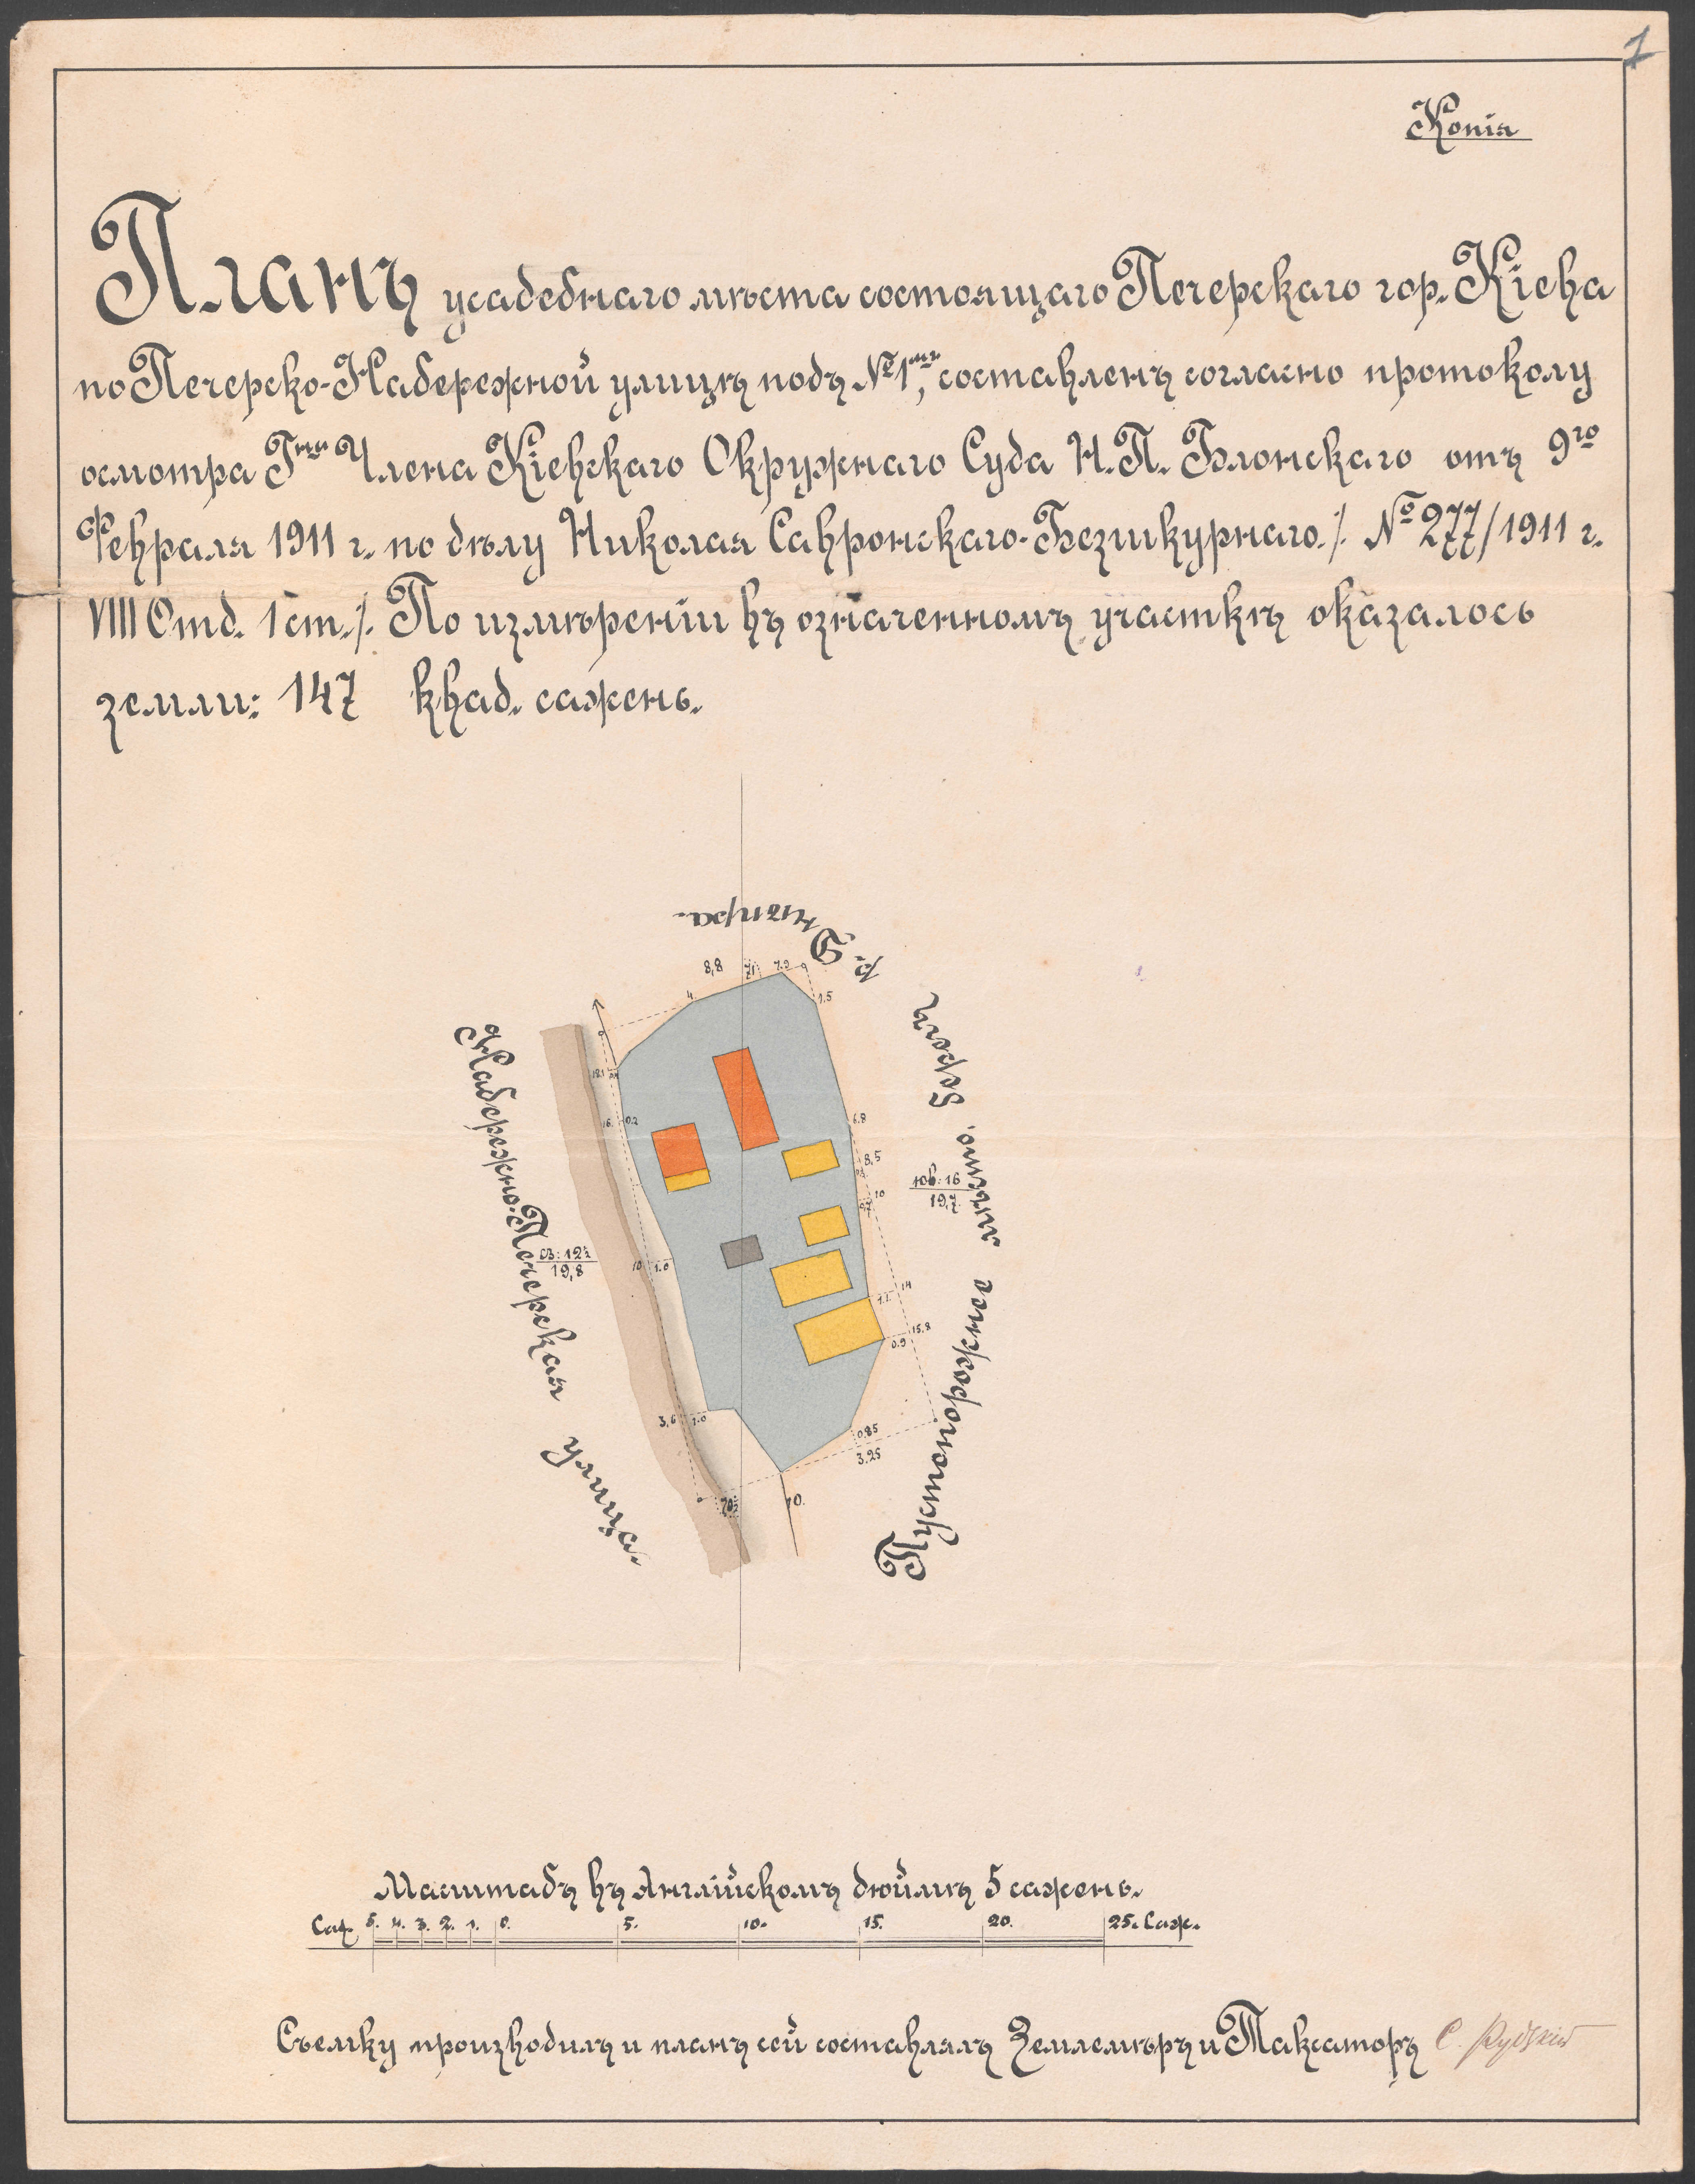 1
Копія
Планъ усадебнаго мѣста состоящаго Печерскаго гор. Кіева
по Печерско-Набережной улицѣ подъ №1мъ, составленъ согласно протоколу
осмотра Гна Члена Кіевскаго Окружнаго Суда Н. П. Блонскаго отъ 9го
Февраля 1911 г. по дѣлу Николая Савронскаго-Безшкурнаго ./. № 277/1911 г.
VIII Отд. 1 ст. ./. По измѣреніи въ означенномъ участкѣ оказалось
земли: 147 квад. сажень.
р. Днѣпра.
8,8
4.
1.5
Набережно-Печерская улица.
Пустопорожнее мѣсто. Берегъ
16.
0.2
6.8
8,5
10
юв: 16
19,7
сз: 12½
19,8
10
1.0
14
1.1
15.8
0.9
3,6
1.0
0.85
3.25
10.
Масштабъ въ Англійскомъ дюймѣ 5 сажень.
Саж. 5. 4. 3. 2. 1. 0. 5. 10. 15. 20. 25. Саж.
Съемку производилъ и планъ сей составлялъ Землемѣръ и Таксаторъ С. Рудзкій